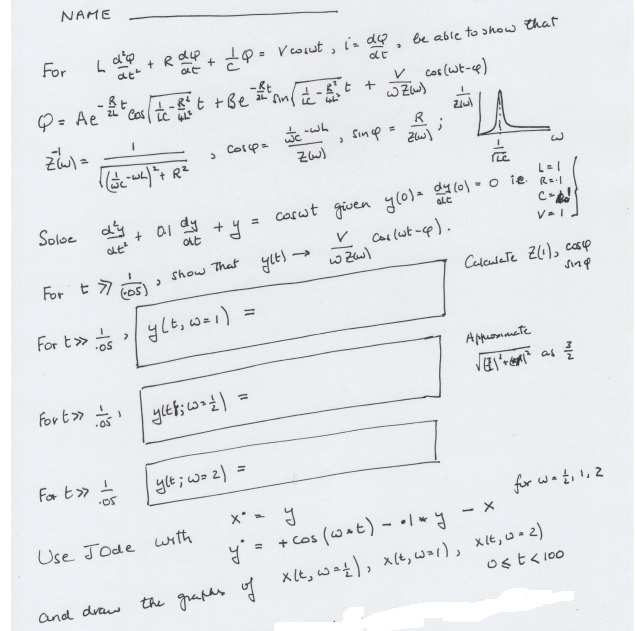 NAME
For L d²φ/dt² + R dφ/dt + 1/C φ = V cosωt, i = dφ/dt, be able to show that
φ = Ae^(-R/2L t) cos √(1/LC - R²/4L²) t + Be^(-R/2L t) sin √(1/LC - R²/4L²) t + V/(ωZ(ω)) cos(ωt-φ)
Z⁻¹(ω) = 1/√((1/ωC - ωL)² + R²), cosφ = (1/ωC - ωL)/Z(ω), sinφ = R/Z(ω); 1/Z(ω) 1/√LC ω
Solve d²y/dt² + 0.1 dy/dt + y = cosωt given y(0) = dy/dt(0) = 0 i.e. L=1 R=.1 C=1 V=1
For t >> 1/(.05), show that y(t) → V/(ωZ(ω)) cos(ωt-φ).
Calculate Z(1), cosφ sinφ
For t >> 1/.05, y(t, ω=1) =
Approximate √((3/2)²+(.1)²) as 3/2
For t >> 1/.05, y(t; ω=1/2) =
For t >> 1/.05 y(t; ω=2) =
Use JOde with x• = y for ω = 1/2, 1, 2
y• = +cos(ω*t) - .1*y - x
and draw the graphs of x(t, ω=1/2), x(t, ω=1), x(t, ω=2)
0 ≤ t < 100